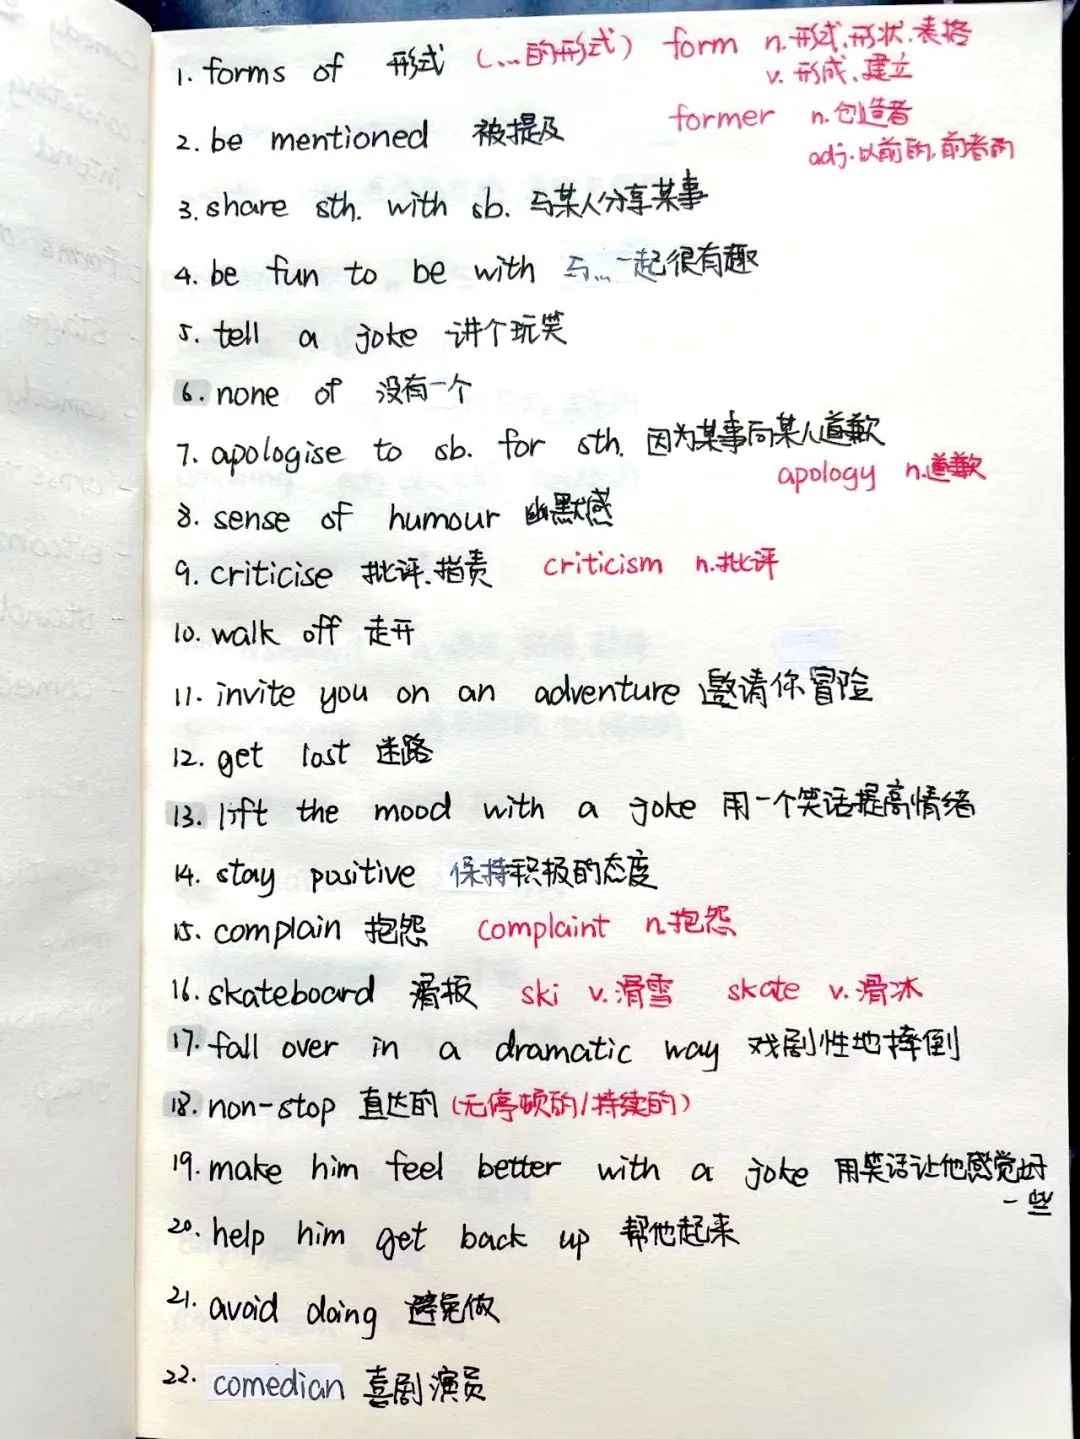 1. forms of 形式 (...的形式) form n.形式.形状.表格
v. 形成.建立
2. be mentioned 被提及 former n.创造者
adj.以前的,前者的
3. share sth. with sb. 与某人分享某事
4. be fun to be with 与...一起很有趣
5. tell a joke 讲个玩笑
6. none of 没有一个
7. apologise to sb. for sth. 因为某事向某人道歉
apology n.道歉
8. sense of humour 幽默感
9. criticise 批评.指责 criticism n.批评
10. walk off 走开
11. invite you on an adventure 邀请你冒险
12. get lost 迷路
13. lift the mood with a joke 用一个笑话提高情绪
14. stay positive 保持积极的态度
15. complain 抱怨 complaint n.抱怨
16. skateboard 滑板 ski v.滑雪 skate v.滑冰
17. fall over in a dramatic way 戏剧性地摔倒
18. non-stop 直达的 (无停顿的/持续的)
19. make him feel better with a joke 用笑话让他感觉好
一些
20. help him get back up 帮他起来
21. avoid doing 避免做
22. comedian 喜剧演员